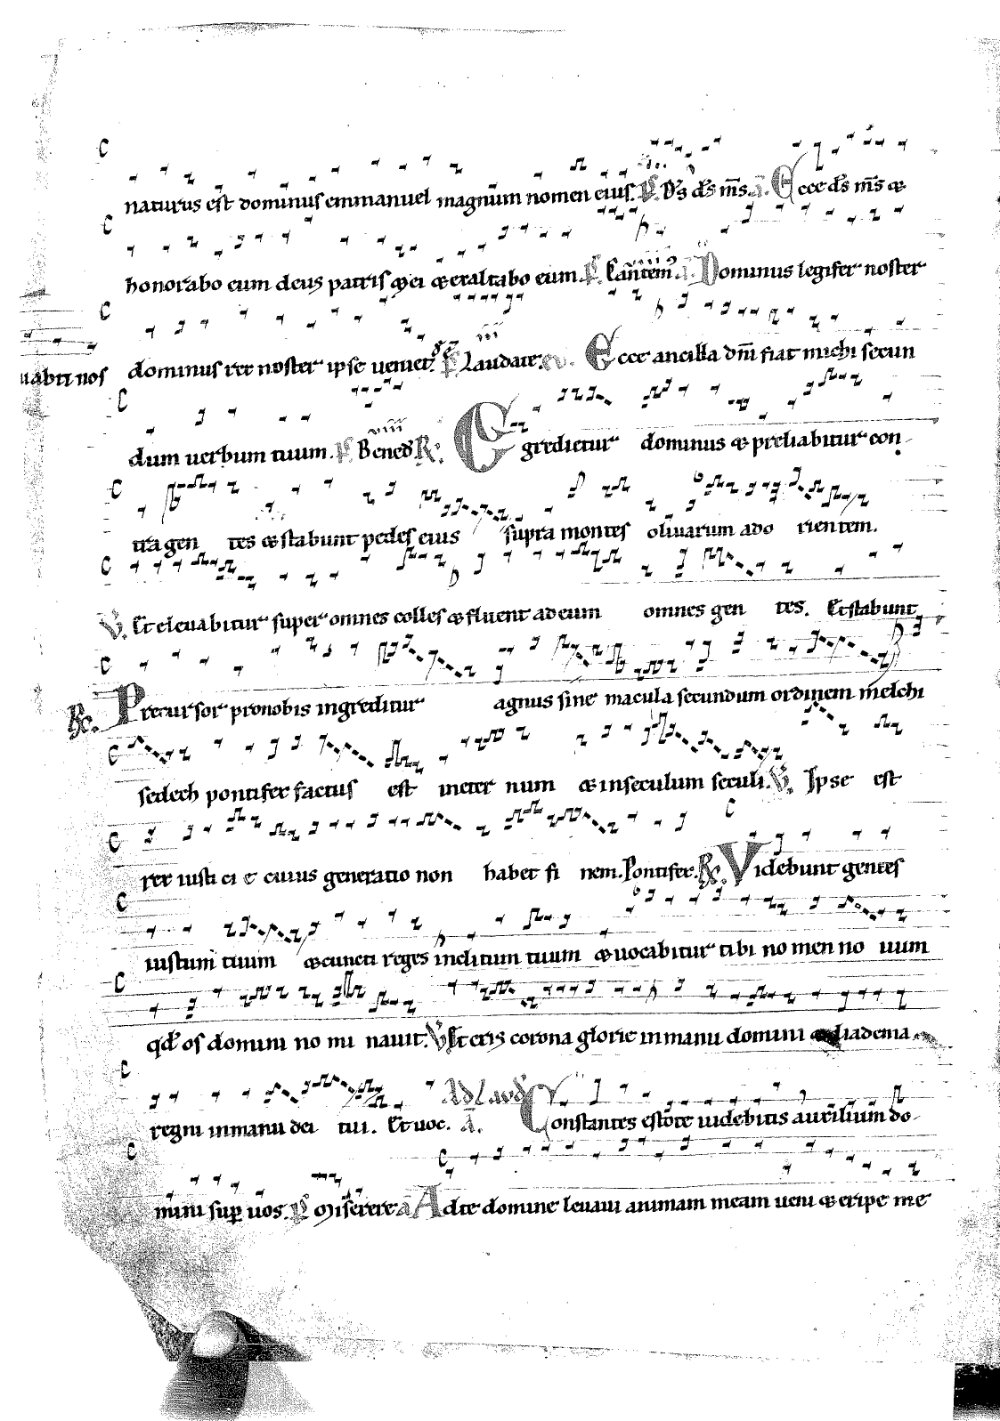 naturus est dominus emmanuel magnum nomen eius. P̄. Ds ds ms. A. Ecce ds ms &
honorabo eum deus patris mei & exaltabo eum. P̄. Cantem̄. A. Dominus legifer noster
dominus rex noster ipse ueniet. P̄ Laudate. Ecce ancilla dn̄i fiat michi secun
uabit nos
dum uerbum tuum. P̄ Bened R. Egredietur dominus & preliabitur con
tra gen tes & stabunt pedes eius supra montes oliuarum ad o rientem.
V. Et eleuabitur super omnes colles & fluent ad eum omnes gen tes. Et stabunt
R. Precursor pro nobis ingreditur agnus sine macula secundum ordinem melchi
sedech pontifex factus est in eter num & in seculum seculi. V. Ipse est
rex iusti ci e cuius generatio non habet fi nem. Pontifex. R. Videbunt gentes
iustum tuum & cuncti reges inclitum tuum & uocabitur tibi no men no uum
qd̄ os domini no mi nauit. V. Et eris corona glorie in manu domini & diadema
regni in manu dei tui. Et uoc. Ad Laud. A. Constantes estote uidebitis auxilium do-
mini sup uos. P̄ Miserere A Ad te domine leuaui animam meam ueni & eripe me